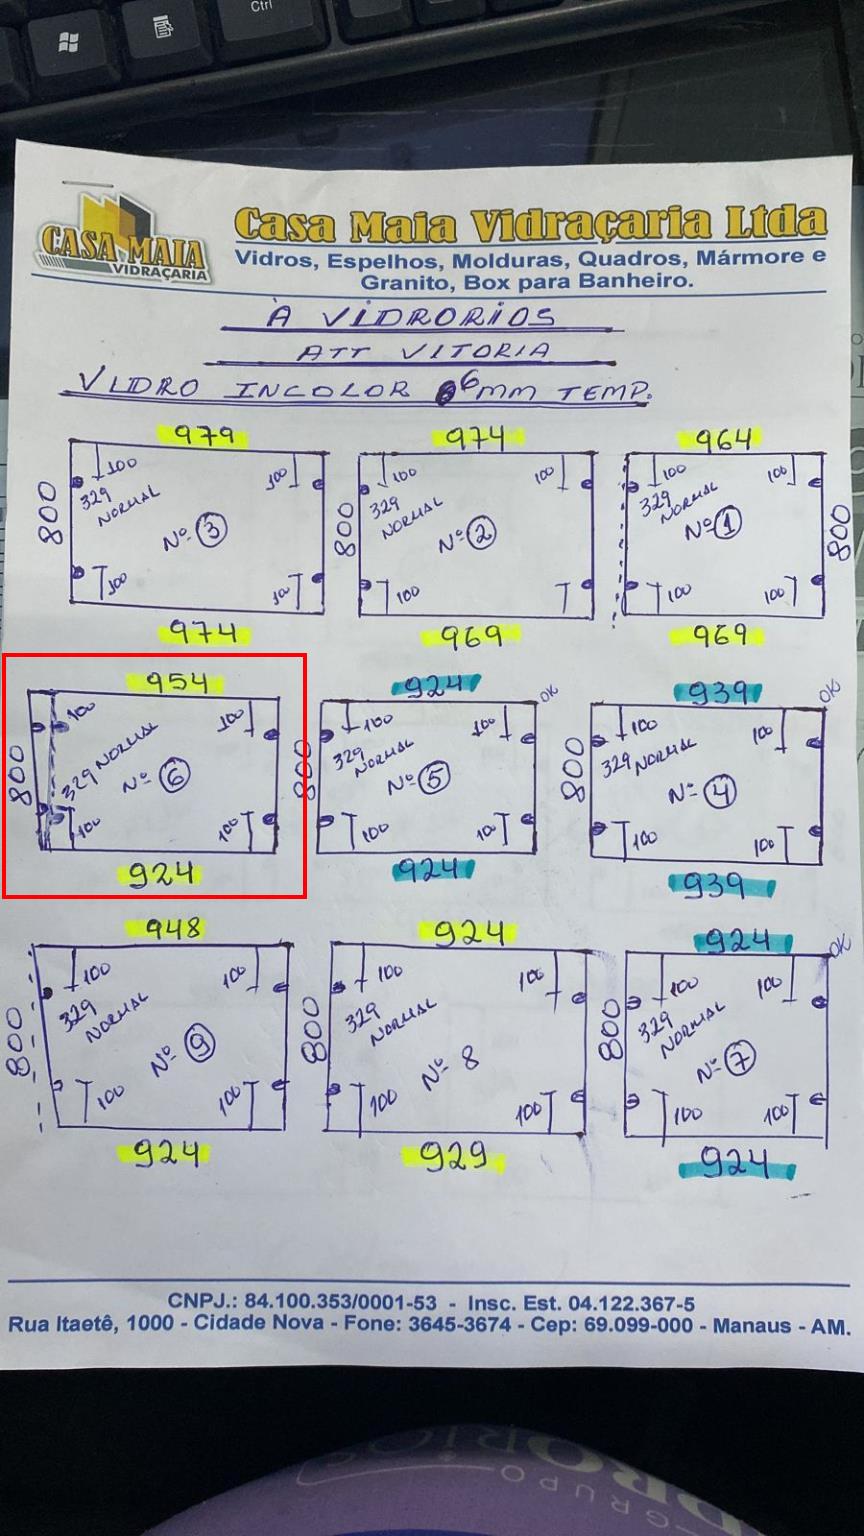 Ctrl
CASA MAIA
VIDRAÇARIA
Casa Maia Vidraçaria Ltda
Vidros, Espelhos, Molduras, Quadros, Mármore e
Granito, Box para Banheiro.
À VIDRORIOS
ATT VITORIA
VIDRO INCOLOR 6MM TEMP.
979
800
100
100
329
NORMAL
Nº 3
100
100
974
974
800
100
100
329
NORMAL
Nº 2
100
969
964
100
100
800
329
NORMAL
Nº 1
100
100
969
954
800
100
100
329 NORMAL
Nº 6
100
100
924
924
OK
800
100
100
329
NORMAL
Nº 5
100
100
924
939
OK
800
100
100
329 NORMAL
Nº 4
100
100
939
948
800
100
100
329
NORMAL
Nº 9
100
100
924
924
800
100
100
329
NORMAL
Nº 8
100
100
929
924
OK
800
100
100
329
NORMAL
Nº 7
100
100
924
CNPJ.: 84.100.353/0001-53 - Insc. Est. 04.122.367-5
Rua Itaetê, 1000 - Cidade Nova - Fone: 3645-3674 - Cep: 69.099-000 - Manaus - AM.
GRUPO